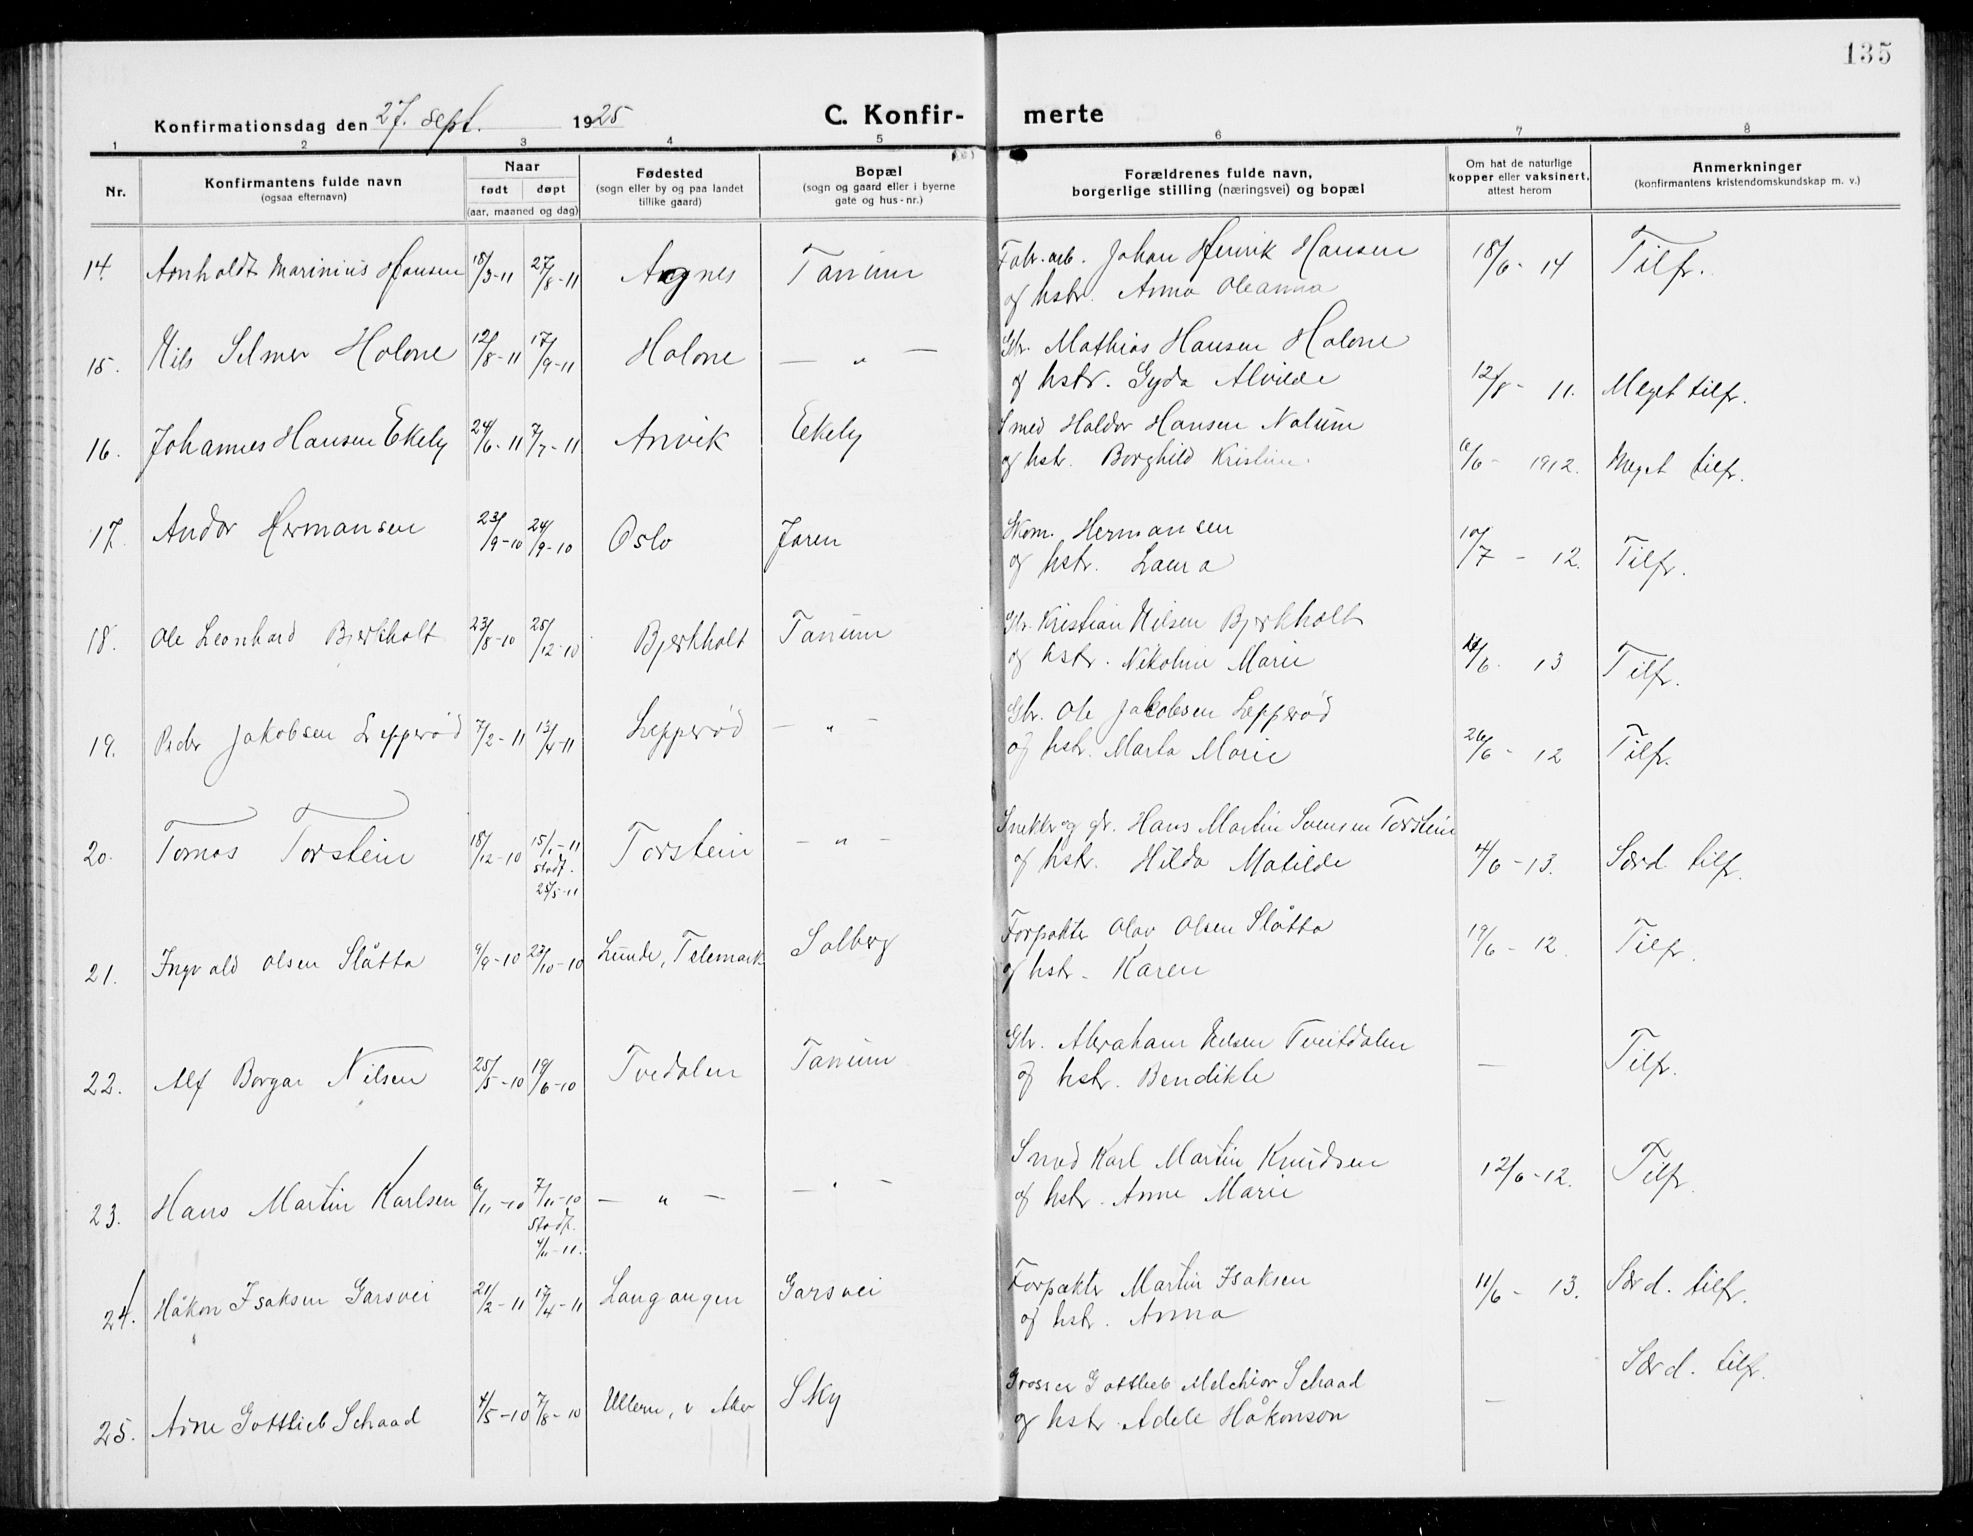 135
Konfirmationsdag den 27. sept. 1925
C. Konfir- merte
1 2 3 4 5 6 7 8
Nr.
Konfirmantens fulde navn
(ogsaa efternavn)
Naar
født døpt
(aar, maaned og dag)
Fødested
(sogn eller by og paa landet
tillike gaard)
Bopæl
(sogn og gaard eller i byerne
gate og hus-nr.)
Forældrenes fulde navn,
borgerlige stilling (næringsvei) og bopæl
Om hat de naturlige
kopper eller vaksinert,
attest herom
Anmerkninger
(konfirmantens kristendomskundskap m. v.)
14. Arnholdt Marinius Hansen 18/3-11 27/8-11 Agnes Tanum Fabr. arb. Johan Henrik Hansen 18/6-14 Tilfr.
og hstr. Anna Oleanna
15. Nils Selmer Holone 12/8-11 17/9-11 Holone — " — Gbr. Mathias Hansen Holone
og hstr. Gyda Alvilde 12/8-11. Meget tilfr.
16. Johannes Hansen Ekely 24/6-11 7/7-11 Anvik Ekely Smed Haldor Hansen Nalum
og hstr. Borghild Kristine. 6/6-1912. Meget tilfr.
17. Andor Hermansen 23/9-10 24/9-10 Oslo Jaren Skom. Hermansen
og hstr. Laura 10/7-12. Tilfr.
18. Ole Leonhard Bjerkholt 23/8-10 25/12-10 Bjerkholt Tanum Gbr. Kristian Nilsen Bjerkholt
og hstr. Nikoline Marie /6. 13 Tilfr.
19. Peder Jakobsen Lepperød 7/2-11 13/4-11 Lepperød — " — Gbr. Ole Jakobsen Lepperød
og hstr. Marta Marie 26/6-12 Tilfr.
20. Tomas Torstein 18/12-10 15/1-11 Torstein — " — Snekker og gbr. Hans Martin Svensen Torstein
stadf. 25/5-11
og hstr. Hilda Matilde 4/6-13. Særd. tilfr.
21. Ingvald Olsen Slåtta 9/9-10 23/10-10 Lunde, Telemark Solberg Forpakter Olav Olsen Slåtta 19/6-12. Tilfr.
og hstr. Karen
22. Alf Borgar Nilsen 25/5-10 19/6-10 Tvedalen Tanum Gbr. Abraham Nilsen Tveitdalen — Tilfr.
og hstr. Bendikte
23. Hans Martin Karlsen 6/11-10 7/11-10 — " — — " — Smed Karl Martin Knudsen 12/6-12. Tilfr.
stadf. 4/11-11.
og hstr. Anne Marie
24. Håkon Isaksen Garsvei 21/2-11 17/4-11 Langangen Garsvei Forpakter Martin Isaksen 11/6-13. Særd. tilfr.
og hstr. Anna
25. Arne Gottlieb Schaad 4/5-10 7/8-10 Ullern, v Aker Sky Grosser Gottlieb Melchior Schaad — Særd. tilfr.
og hstr. Adele Håkonson